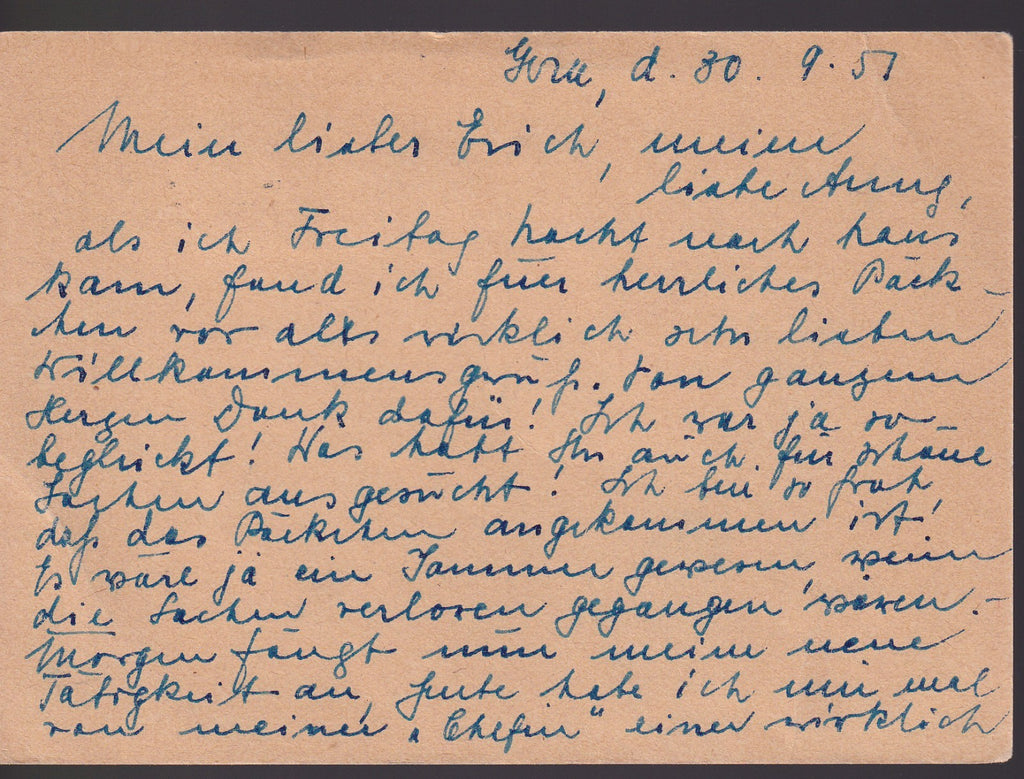 Gera, d. 30. 9. 51
Mein lieber Erich, meine
liebe Anny,
als ich Freitag Nacht nach haus
kam, fand ich Euer herrliches Päck-
chen vor als wirklich sehr lieben
Willkommensgruß. Von ganzem
Herzen Dank dafür! Ich war ja so
beglückt! Was habt Ihr auch für schöne
Sachen ausgesucht! Ich bin so froh,
daß das Päckchen angekommen ist!
Es wäre ja ein Jammer gewesen, wenn
die Sachen verloren gegangen wären. -
Morgen fängt nun meine neue
Tätigkeit an, heute habe ich nun mal
von meiner „Chefin" einen wirklich